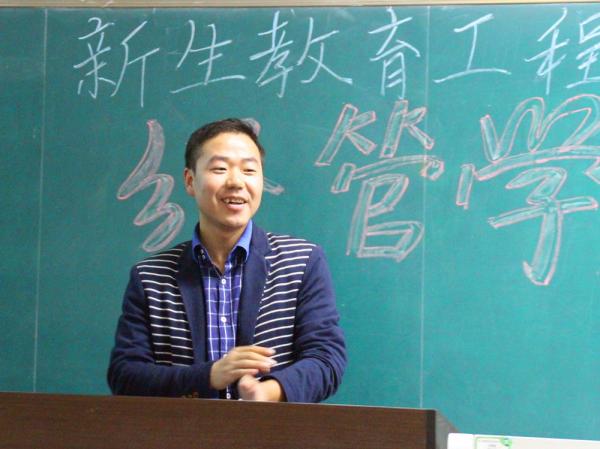 新生教育工程
管学